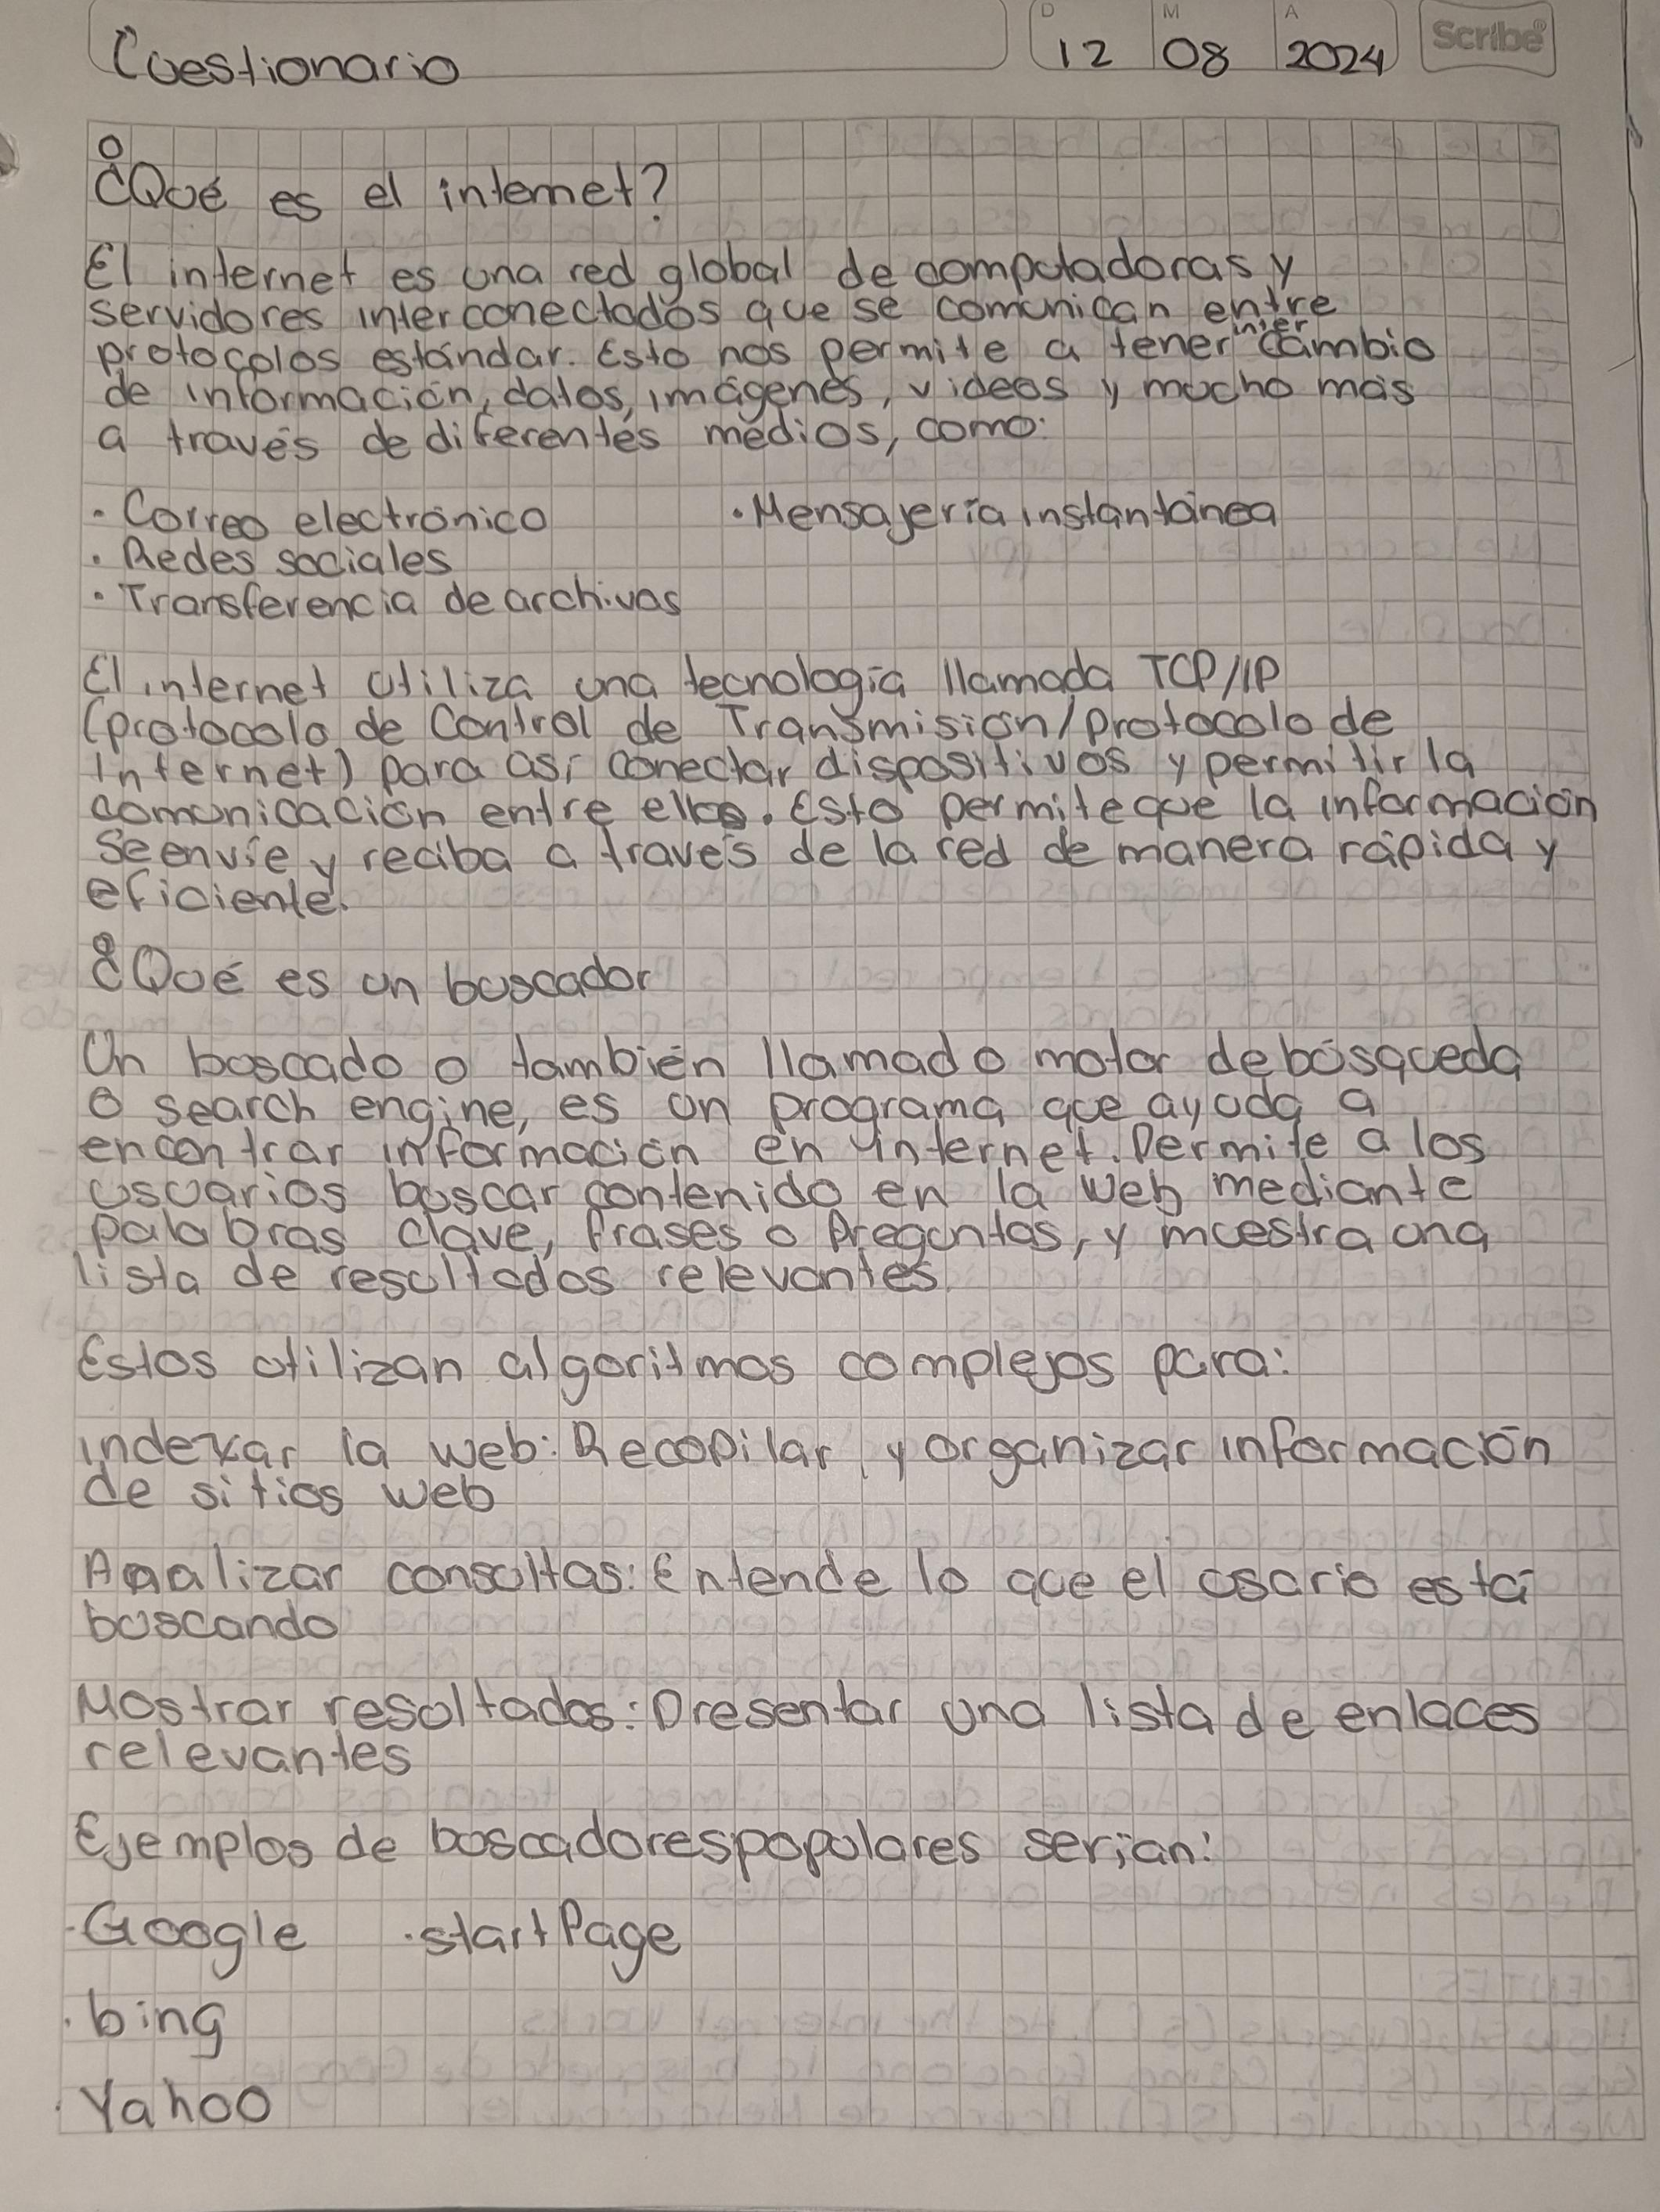 Cuestionario
D M A
12 08 2024
Scribe
¿Qué es el internet?
El internet es una red global de computadoras y
servidores interconectados que se comunican entre
protocolos estándar. Esto nos permite a tener intercambio
de información, datos, imágenes, videos y mucho más
a través de diferentes médios, como:
· Correo electrónico · Mensajería instantánea
· Redes sociales
· Transferencia de archivos
El internet utiliza una tecnología llamada TCP/IP
(protocolo de Control de Transmisión/protocolo de
Internet) para así conectar dispositivos y permitir la
comunicación entre ellos. Esto permite que la información
se envíe y reciba a través de la red de manera rápida y
eficiente.
¿Qué es un buscador
Un buscado o también llamado motor de búsqueda
o search engine, es un programa que ayuda a
encontrar información en internet. Permite a los
usuarios buscar contenido en la web mediante
palabras clave, frases o preguntas, y muestra una
lista de resultados relevantes.
Estos utilizan algoritmos complejos para:
indexar la web: Recopilar y organizar información
de sitios web
Analizar consultas: Entende lo que el usario está
buscando
Mostrar resultados: Presentar una lista de enlaces
relevantes
Ejemplos de buscadores populares serían:
· Google · startPage
· bing
· Yahoo